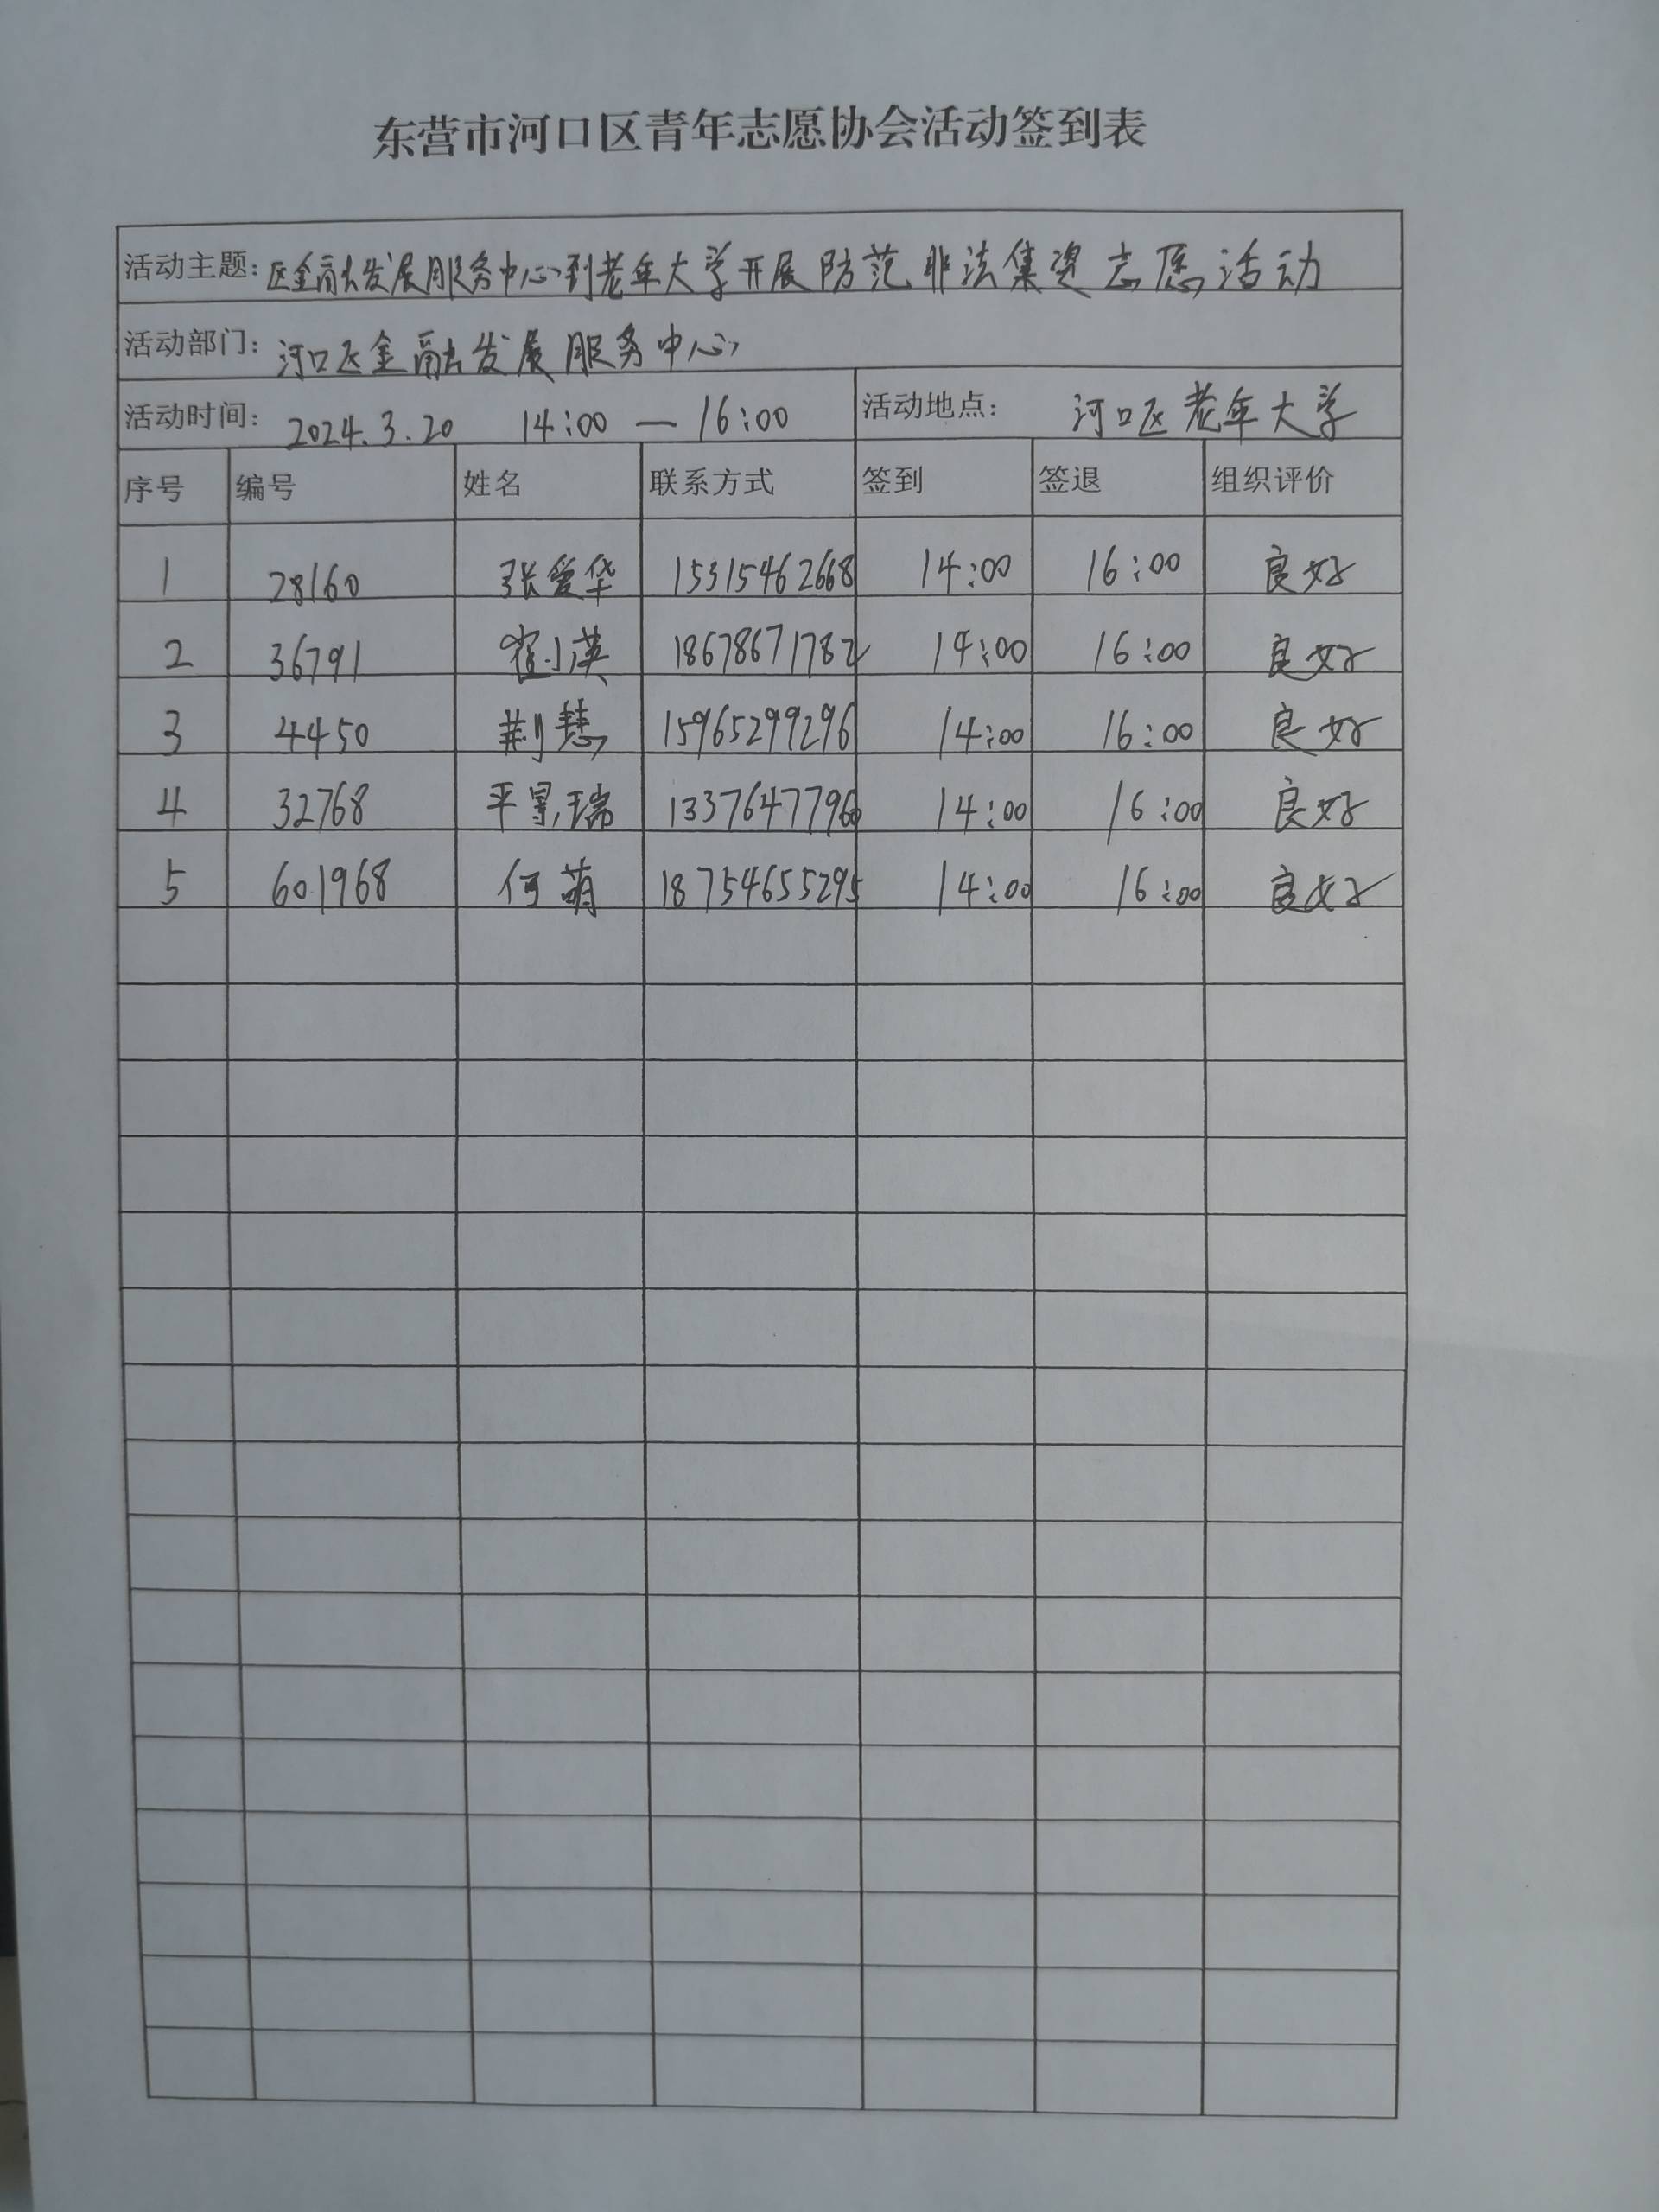 东营市河口区青年志愿协会活动签到表
活动主题：区金融发展服务中心到老年大学开展防范非法集资志愿活动
活动部门：河口区金融发展服务中心
活动时间：2024.3.20 14:00 — 16:00 活动地点：河口区老年大学
序号 编号 姓名 联系方式 签到 签退 组织评价
1 28160 张爱华 15315462668 14:00 16:00 良好
2 36791 崔小英 18678671782 14:00 16:00 良好
3 4450 荆慧 15965299296 14:00 16:00 良好
4 32768 平昱瑞 13376477966 14:00 16:00 良好
5 601968 何萌 18754655295 14:00 16:00 良好